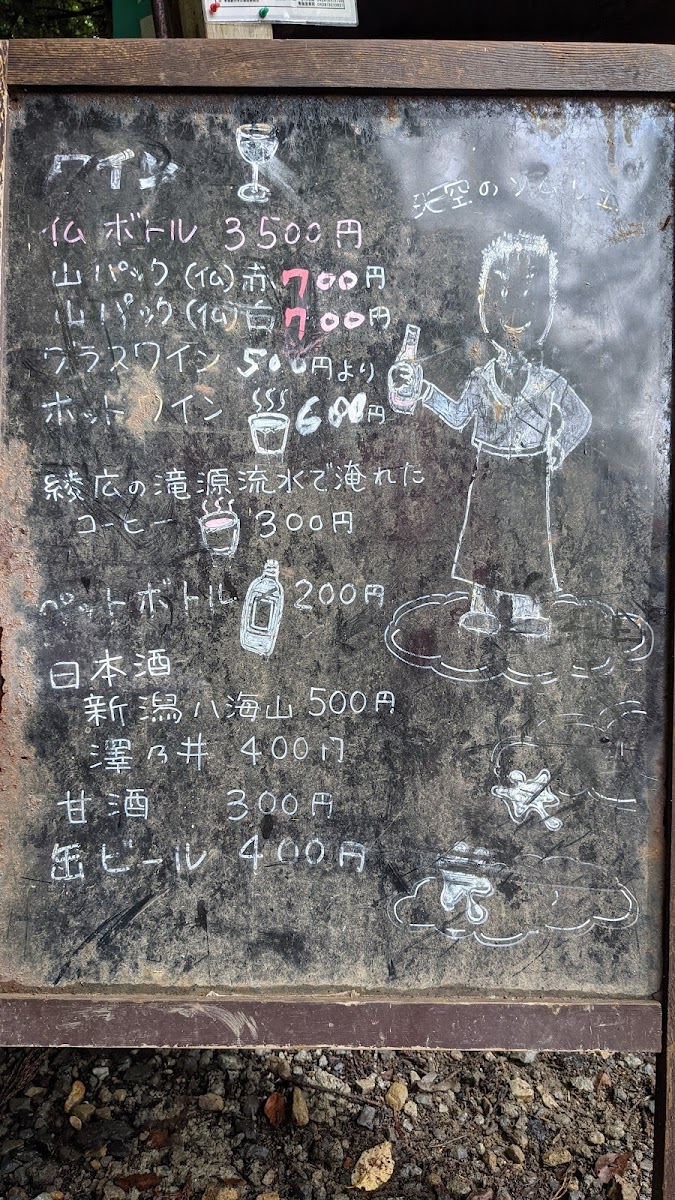 ワイン
天空のソムリエ
仏ボトル 3500円
山パック(仏)赤700円
山パック(仏)白700円
グラスワイン 500円より
ホットワイン 600円
綾広の滝源流水で淹れた
コーヒー 300円
ペットボトル 200円
日本酒
新潟八海山 500円
澤乃井 400円
甘酒 300円
缶ビール 400円